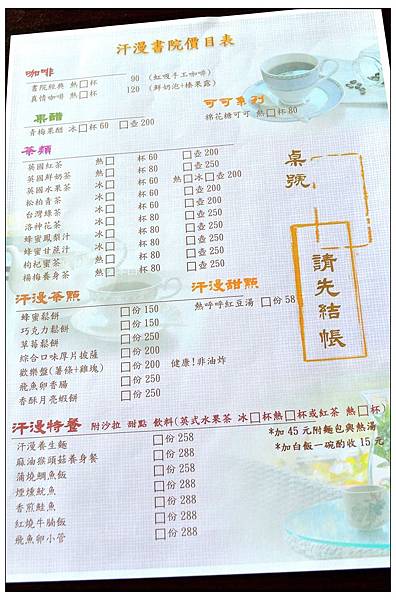 汗漫書院價目表
咖啡
書院經典 熱□杯 90 (虹吸手工咖啡)
真情咖啡 熱□杯 120 (鮮奶泡+榛果露)
果醋
青梅果醋 冰□杯 60 □壺 200
可可系列
棉花糖可可 熱□杯 80
茶類
英國紅茶 熱□ 杯 60 □壺 200
英國鮮奶茶 熱□ 杯 80 □壺 250
英國水果茶 冰□ 杯 60 熱□冰□壺 200
松柏青茶 冰□ 杯 60 □壺 200
台灣綠茶 冰□ 杯 60 □壺 200
洛神花茶 冰□ 杯 80 □壺 250
蜂蜜鳳梨汁 冰□ 杯 80 □壺 250
蜂蜜甘蔗汁 冰□ 杯 80 □壺 250
枸杞蜜茶 熱□ 杯 80 □壺 250
楊梅養身茶 熱□ 杯 80 □壺 250
桌號
請先結帳
汗漫茶點
蜂蜜鬆餅 □份 150
巧克力鬆餅 □份 200
草莓鬆餅 □份 250
綜合口味厚片披薩 □份 200
歡樂盤(薯條+雞塊) □份 200 健康!非油炸
飛魚卵香腸 □份 250
香酥月亮蝦餅 □份 250
汗漫甜點
熱呼呼紅豆湯 □份 58
汗漫特餐 附沙拉 甜點 飲料(英式水果茶 冰□杯熱□杯或紅茶 熱□杯)
汗漫養生麵 □份 258
麻油猴頭菇養身餐 □份 288
蒲燒鯛魚飯 □份 258
煙燻魷魚 □份 288
香煎鮭魚 □份 288
紅燒牛腩飯 □份 288
飛魚卵小管 □份 288
*加 45 元附麵包與熱湯
*加白飯一碗酌收 15 元